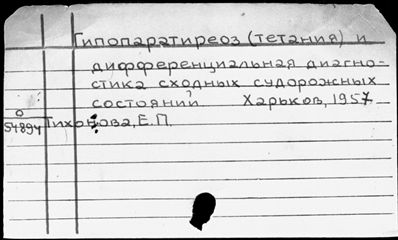 Гипопаратиреоз (тетания) и
дифференциальная диагно-
стика сходных судорожных
состояний Харьков, 1957
О
54894 Тихонова, Е.П.